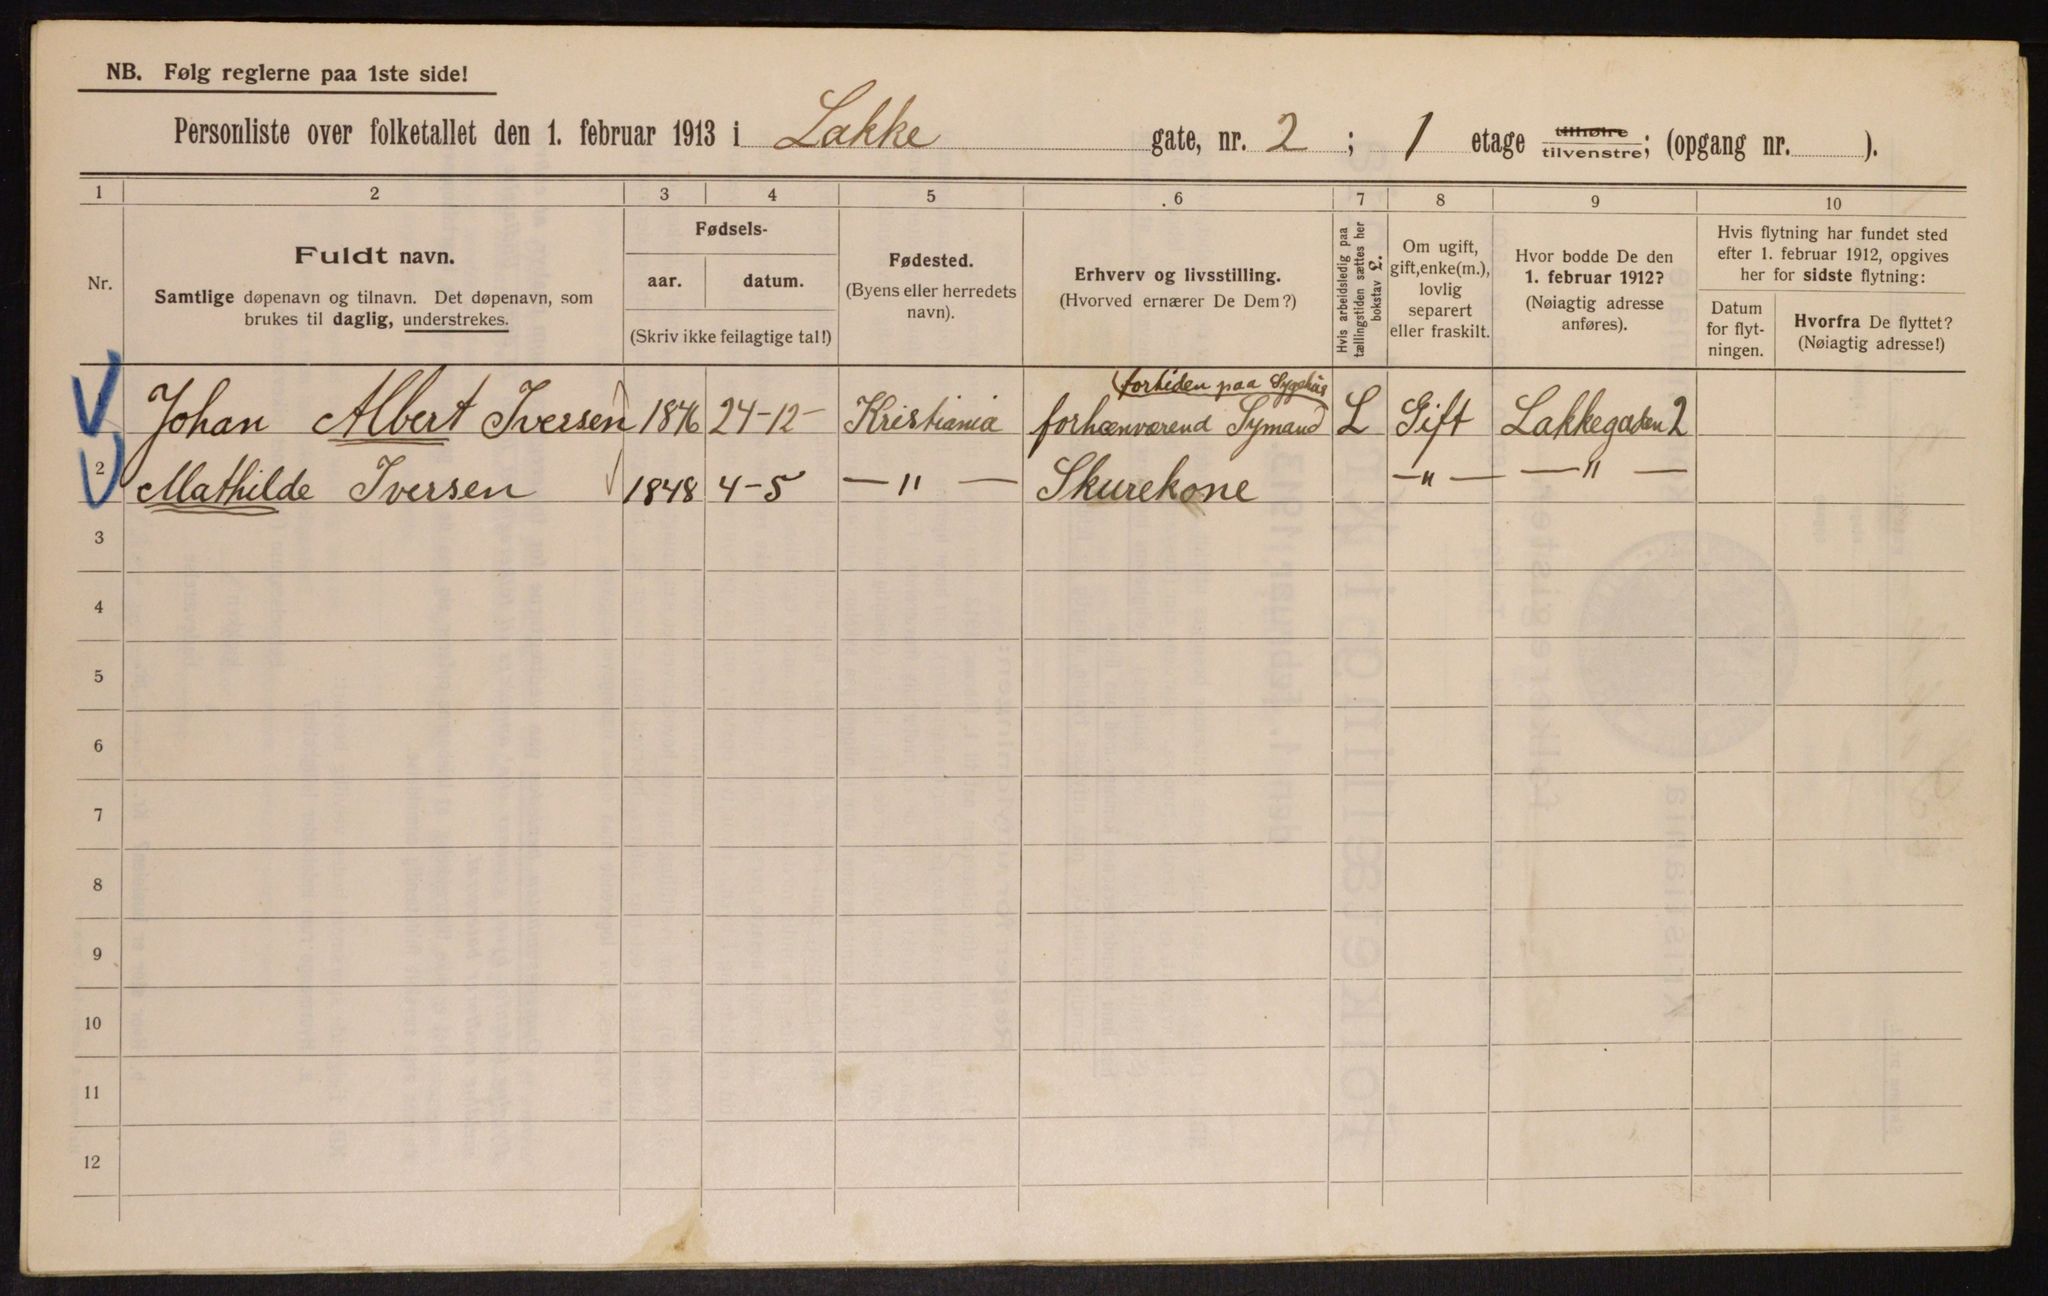 NB. Følg reglerne paa 1ste side!
Personliste over folketallet den 1. februar 1913 i Lakke gate, nr. 2 ; 1 etage tilhøire tilvenstre; (opgang nr. ).
1 2 3 4 5 6 7 8 9 10
Nr.
Fuldt navn.
Samtlige døpenavn og tilnavn. Det døpenavn, som
brukes til daglig, understrekes.
Fødsels-
aar. datum.
(Skriv ikke feilagtige tal!)
Fødested.
(Byens eller herredets
navn).
Erhverv og livsstilling.
(Hvorved ernærer De Dem?)
Hvis arbeidsledig paa
tællingstiden sættes her
bokstav L.
Om ugift,
gift, enke(m.),
lovlig
separert
eller fraskilt.
Hvor bodde De den
1. februar 1912?
(Nøiagtig adresse
anføres).
Hvis flytning har fundet sted
efter 1. februar 1912, opgives
her for sidste flytning:
Datum
for flyt-
ningen.
Hvorfra De flyttet?
(Nøiagtig adresse!)
(fortiden paa Sygehus
Johan Albert Iversen 1846 24-12- Kristiania forhenværend Symand L Gift Lakkegaten 2
2 Mathilde Iversen 1848 4-5 —"— Skurekone —"— —"—
3
4
5
6
7
8
9
10
11
12